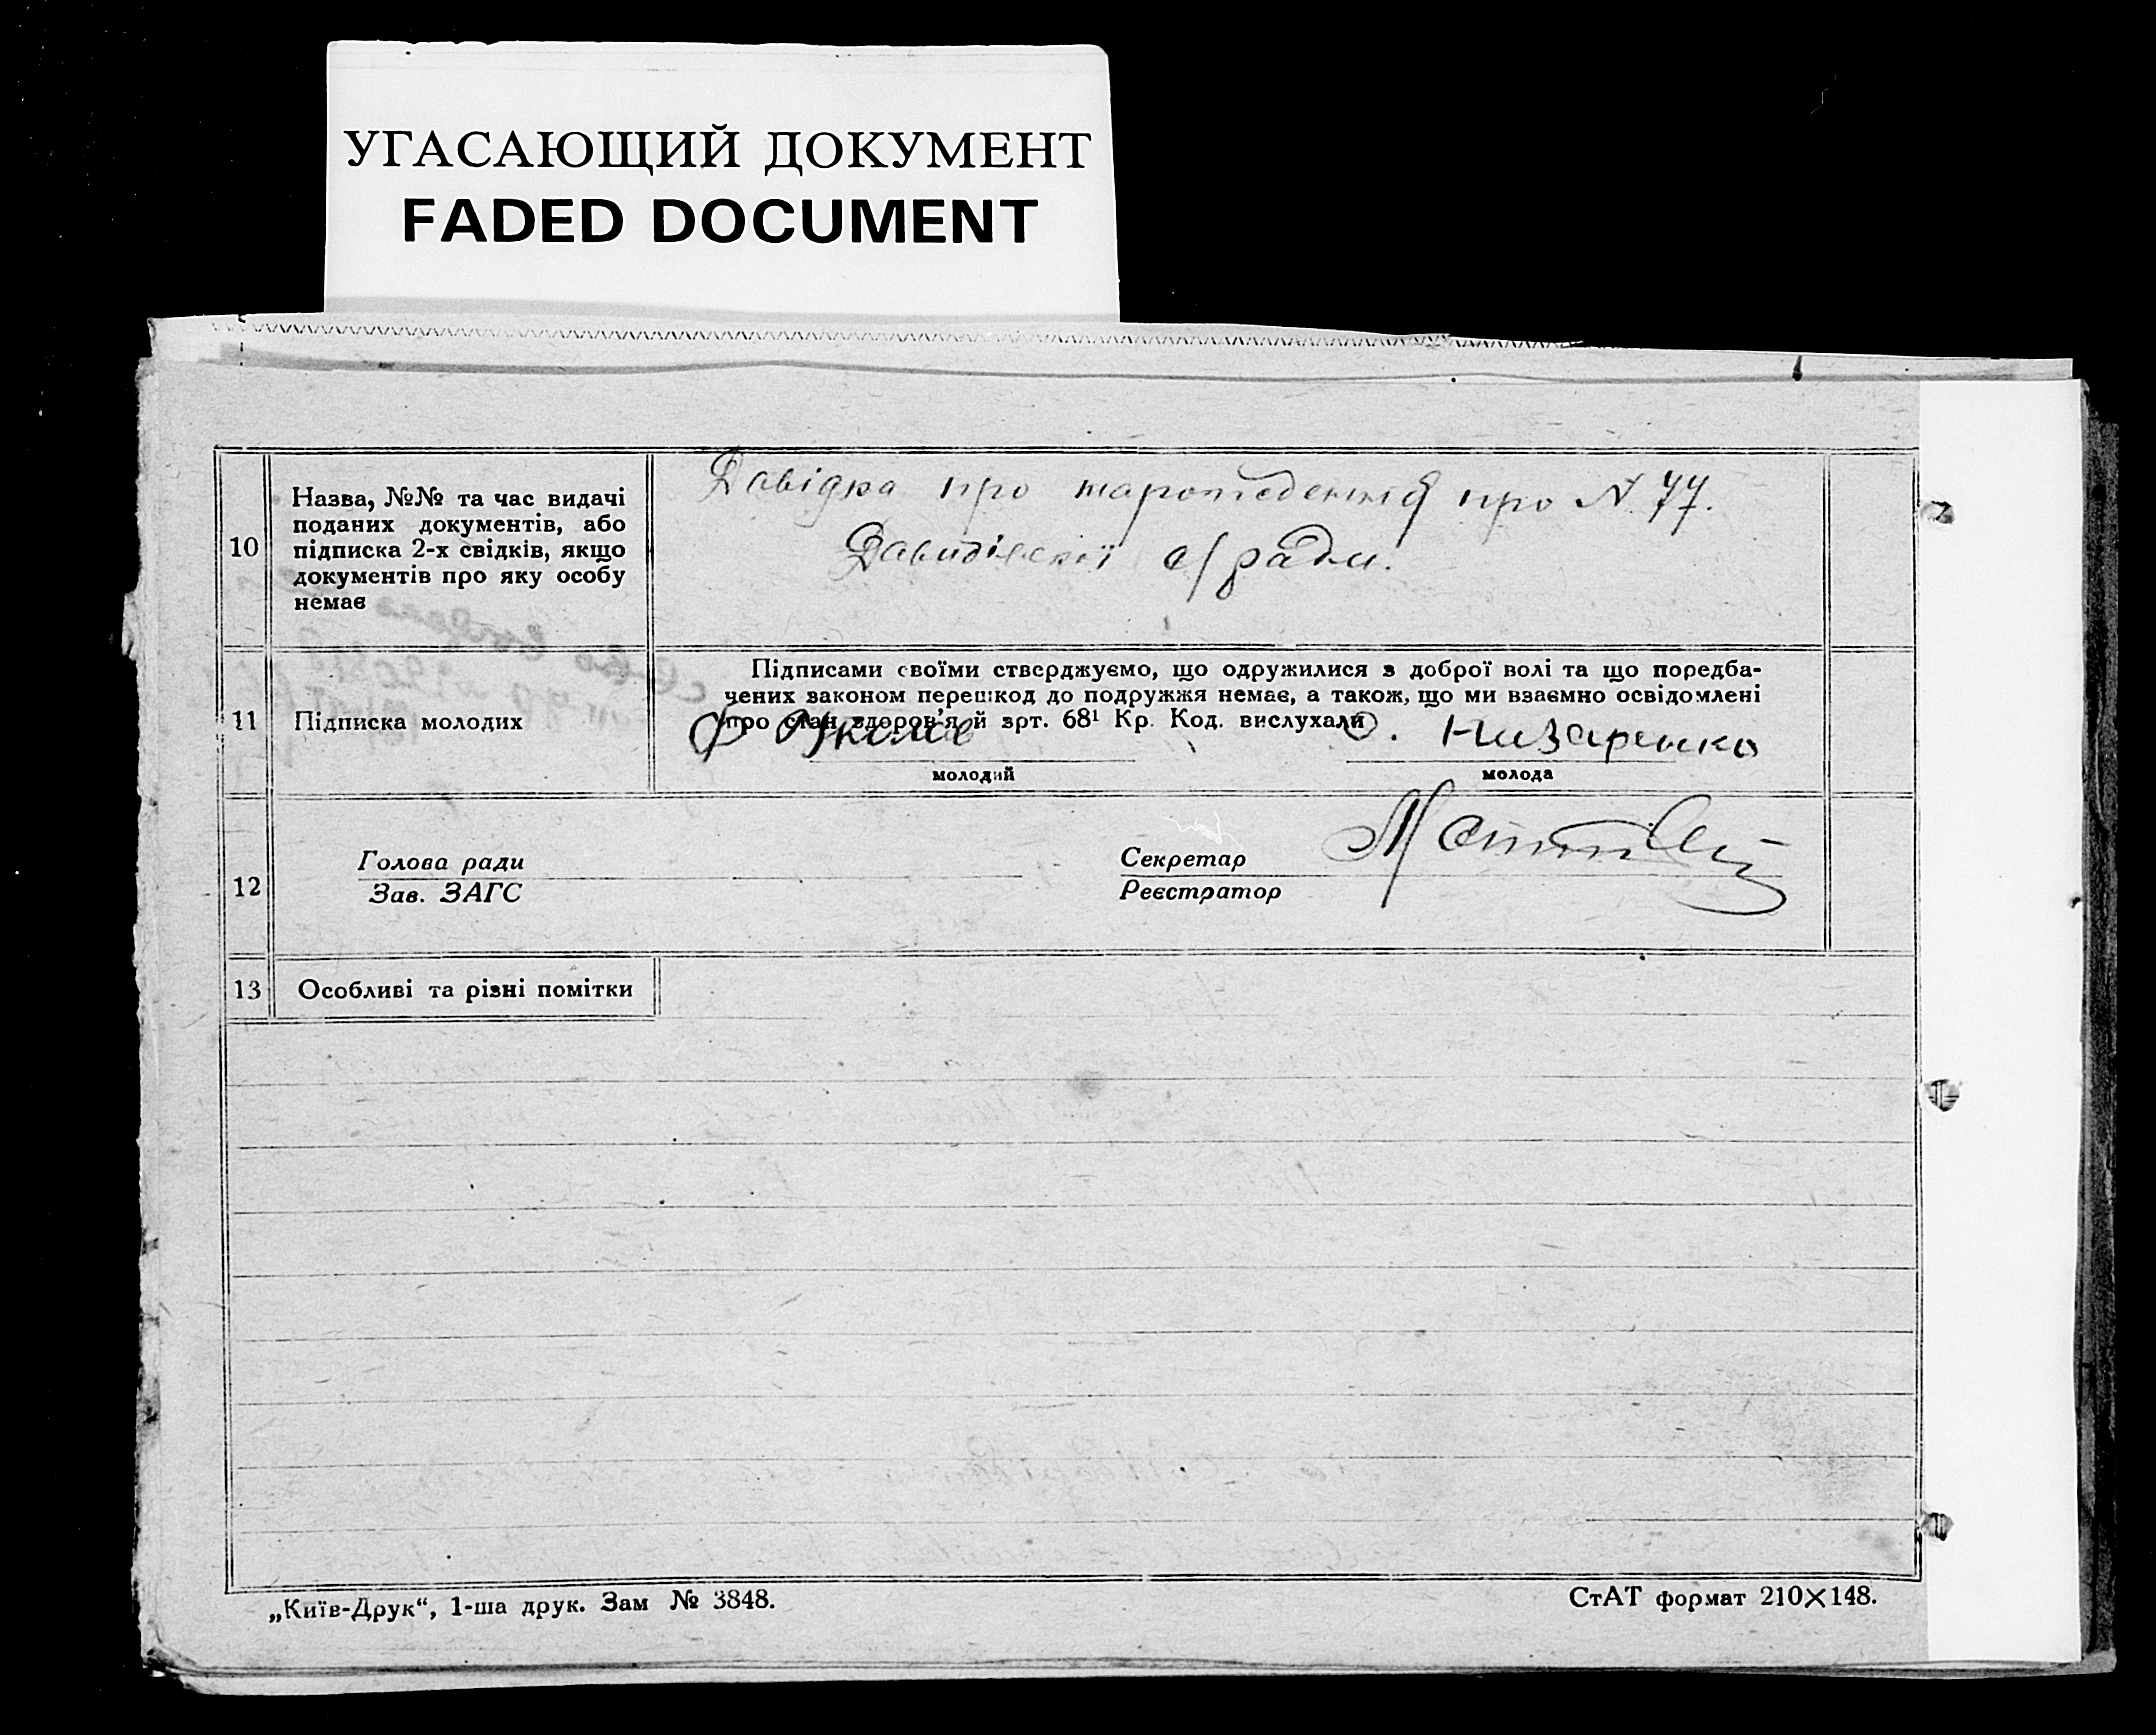 УГАСАЮЩИЙ ДОКУМЕНТ
FADED DOCUMENT
10
Назва, №№ та час видачі
поданих документів, або
підписка 2-х свідків, якщо
документів про яку особу
немає
Довідка про народження про N 77.
Давидівскої с/ради.
11
Підписка молодих
Підписами своїми стверджуємо, що одружилися з доброї волі та що поредба-
чених законом перешкод до подружжя немає, а також, що ми взаємно освідомлені
про стан здоров'я й арт. 68¹ Кр. Код. вислухали
О. Низаренко
молодий
молода
12
Голова ради
Зав. ЗАГС
Секретар
Реєстратор
13
Особливі та різні помітки
„Київ-Друк“, 1-ша друк. Зам № 3848.
СтАТ формат 210×148.